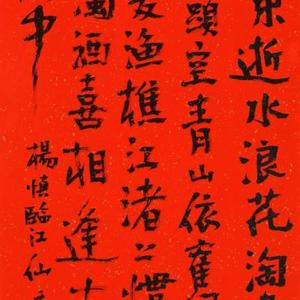 东逝水浪花淘
頭空青山依舊
发漁樵江渚上慣
濁酒喜相逢古
中
楊慎臨江仙